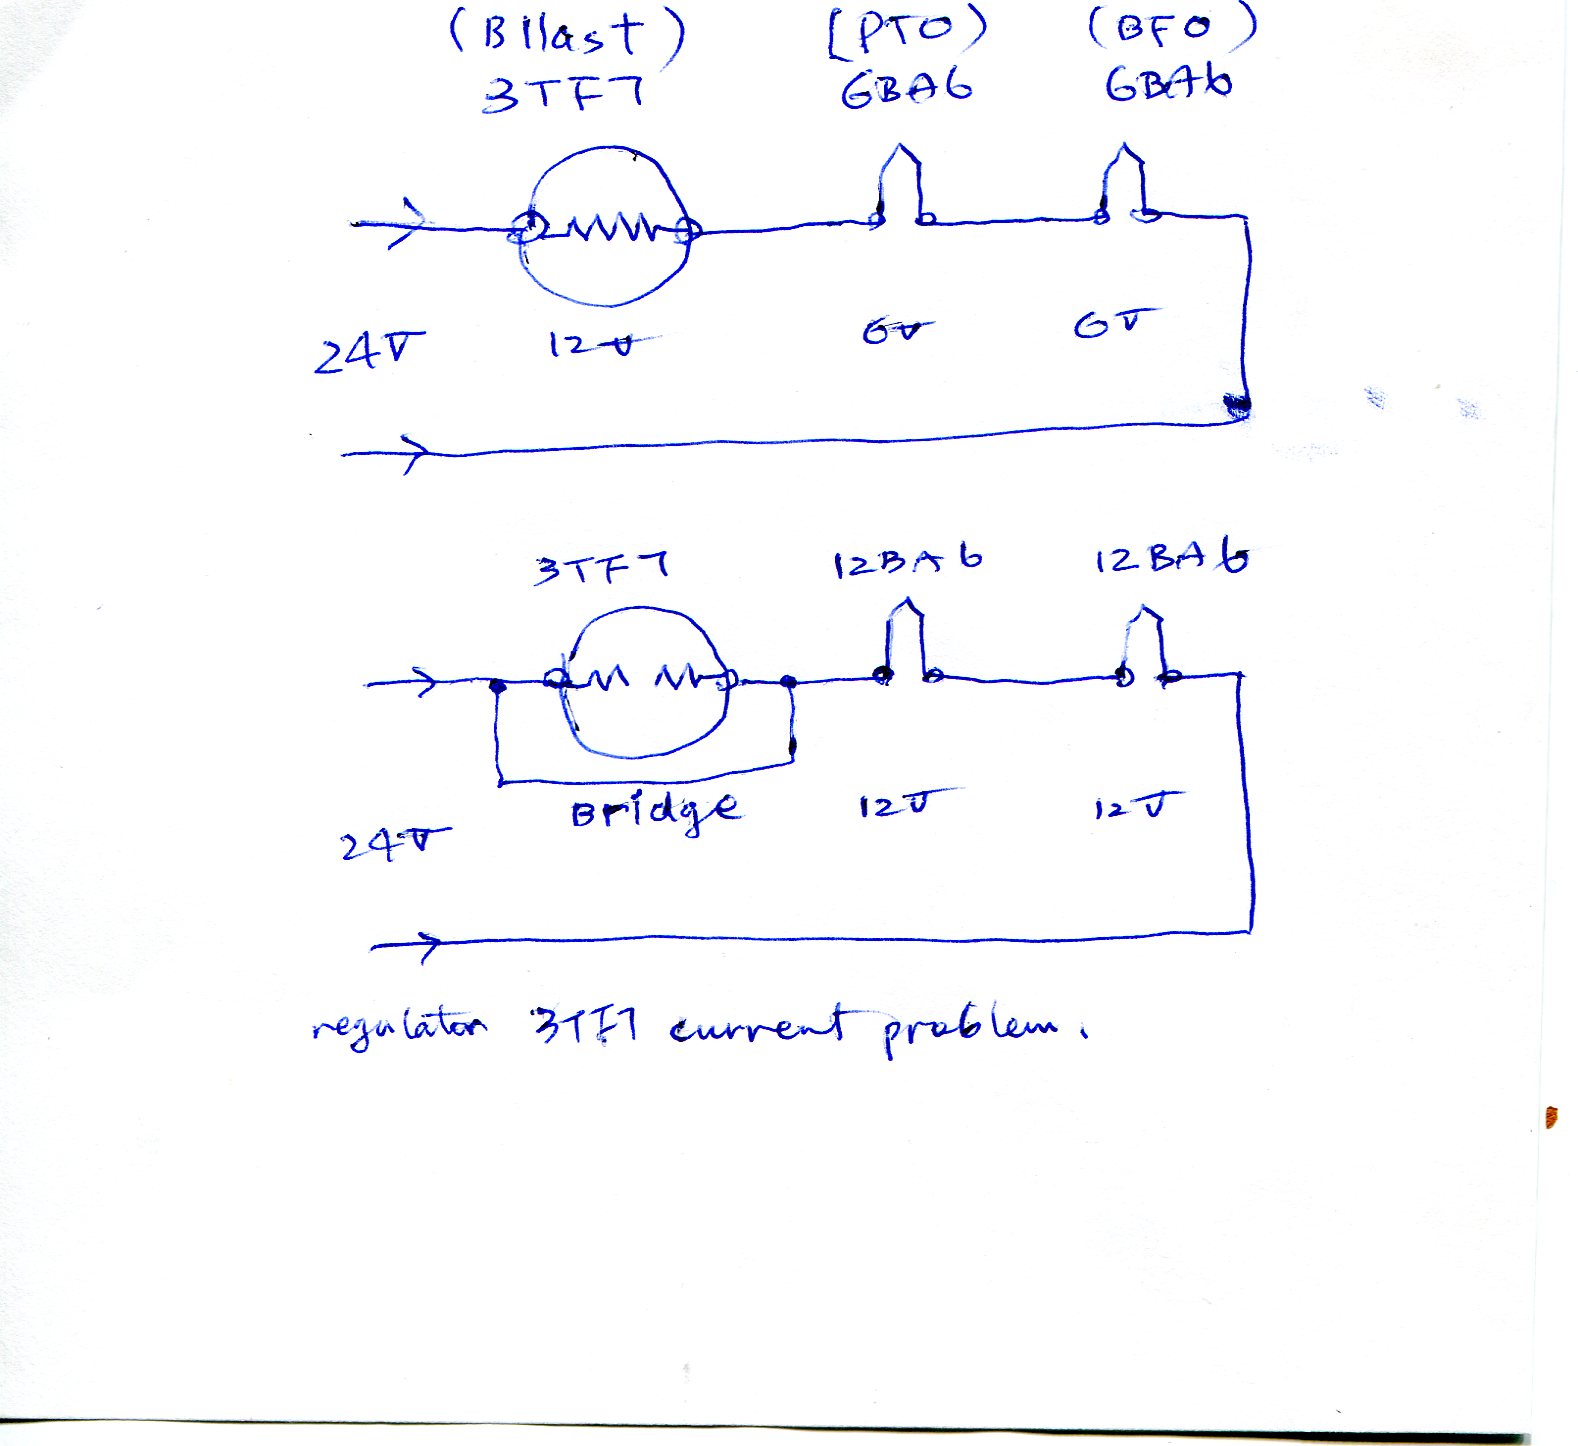 (Bllast) [PTO) (BFO)
3TF7 6BA6 6BA6
24V 12V 6V 6V
3TF7 12BA6 12BA6
Bridge 12V 12V
24V
regulator 3TF7 current problem.